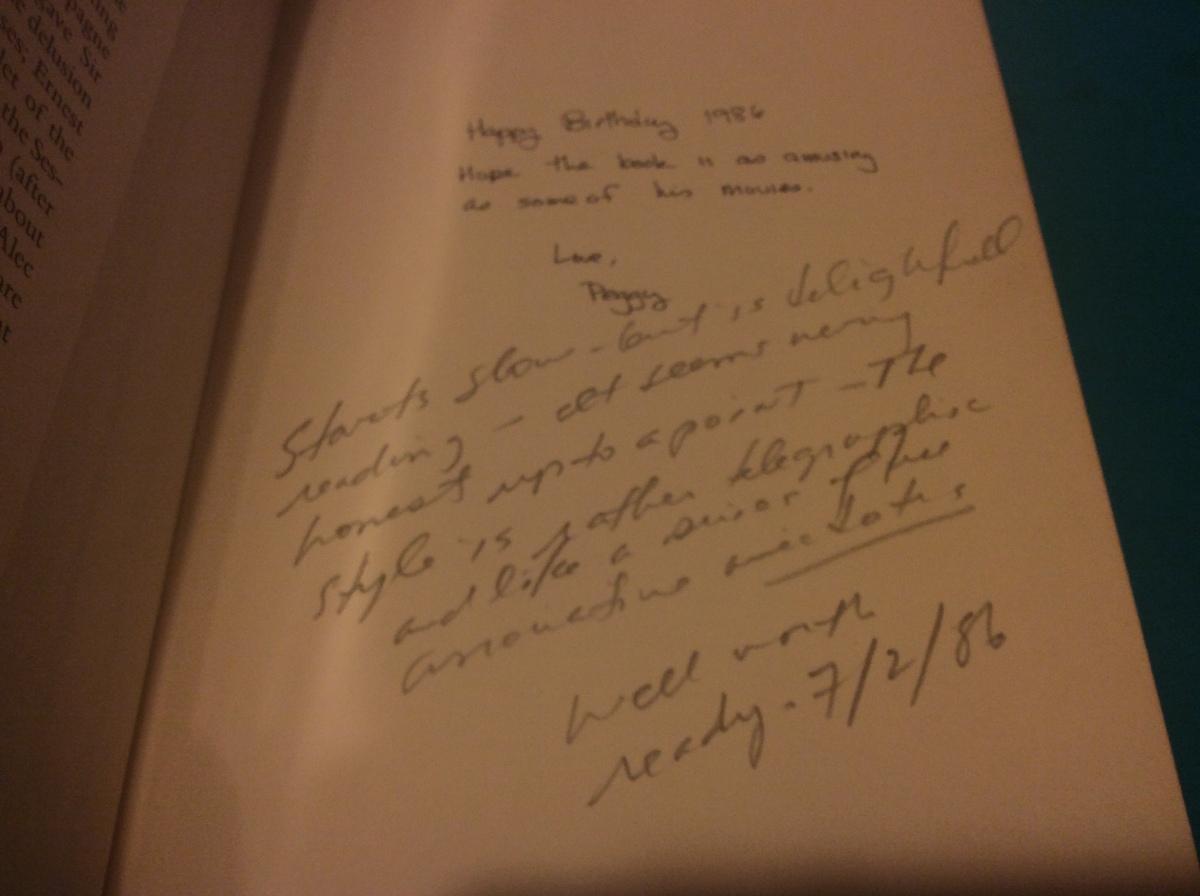 pagne
gave Sir
delusion
ses; Ernest
let of the
the Ses-
(after
about
Alec
are
Happy Birthday 1986
Hope the book is as amusing
as some of his movies.
Love,
Peggy
Starts slow - but is delightfull
reading - seems
honest up to a point - The
style is rather telegraphic
and like a of free
anecdotes
Well worth
readg. 7/2/86